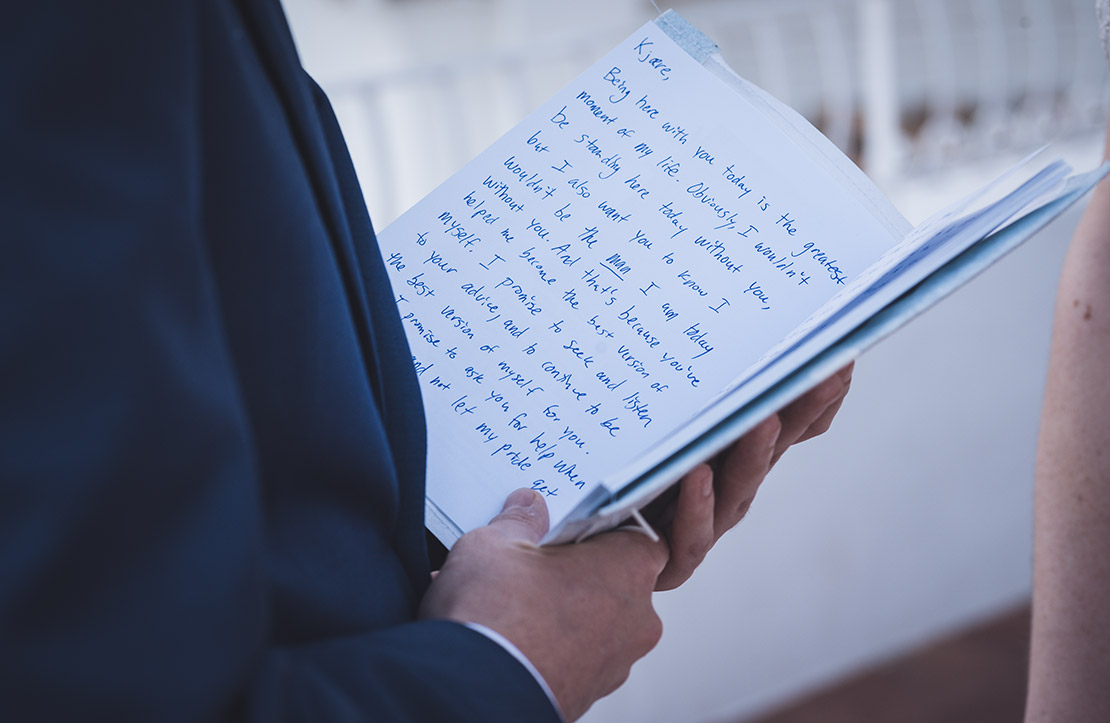 Kjære,
Being here with you today is the greatest
moment of my life. Obviously, I wouldn't
be standing here today without you,
but I also want you to know I
wouldn't be the man I am today
without you. And that's because you've
helped me become the best version of
myself. I promise to seek and listen
to your advice, and to continue to be
the best version of myself for you.
I promise to ask you for help when
and not let my pride get